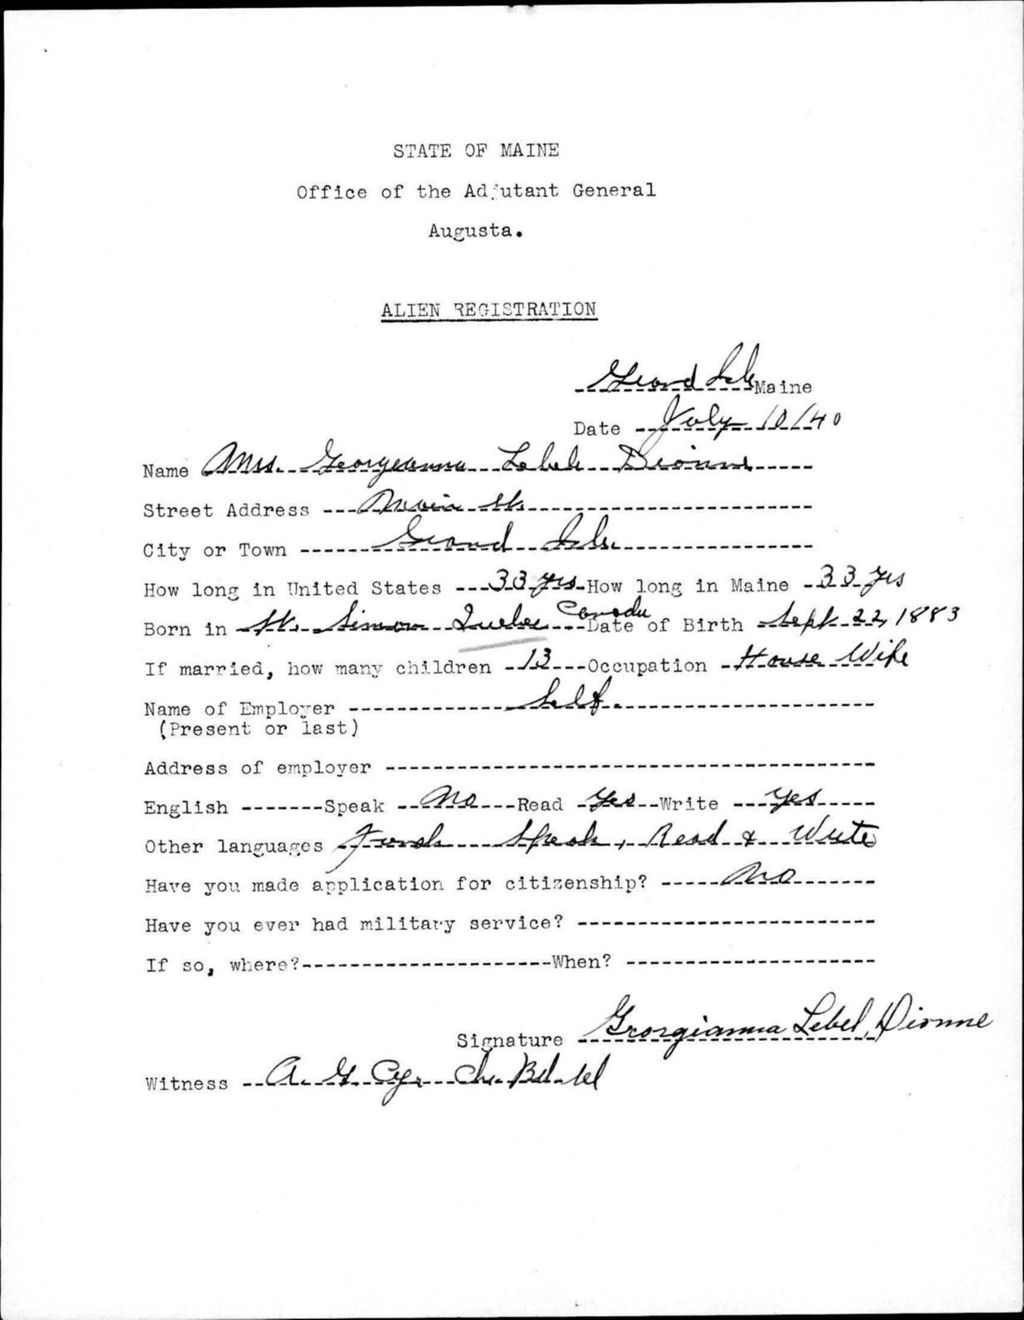 STATE OF MAINE
Office of the Adjutant General
Augusta.
ALIEN REGISTRATION
Grand Isle Maine
Date July 10/40
Name Mrs. Georgeanna Lebel Dionne
Street Address Main St.
City or Town Grand Isle
How long in United States 33 yrs How long in Maine 33 yrs
Born in St. Simon Quebec Canada Date of Birth Sept 22, 1883
If married, how many children 13 Occupation House Wife
Name of Employer Self.
(Present or last)
Address of employer
English Speak No Read Yes Write Yes
Other languages French Speak, Read & Write
Have you made application for citizenship? No
Have you ever had military service?
If so, where? When?
Signature Georgianna Lebel, Dionne
Witness A. G. Cyr